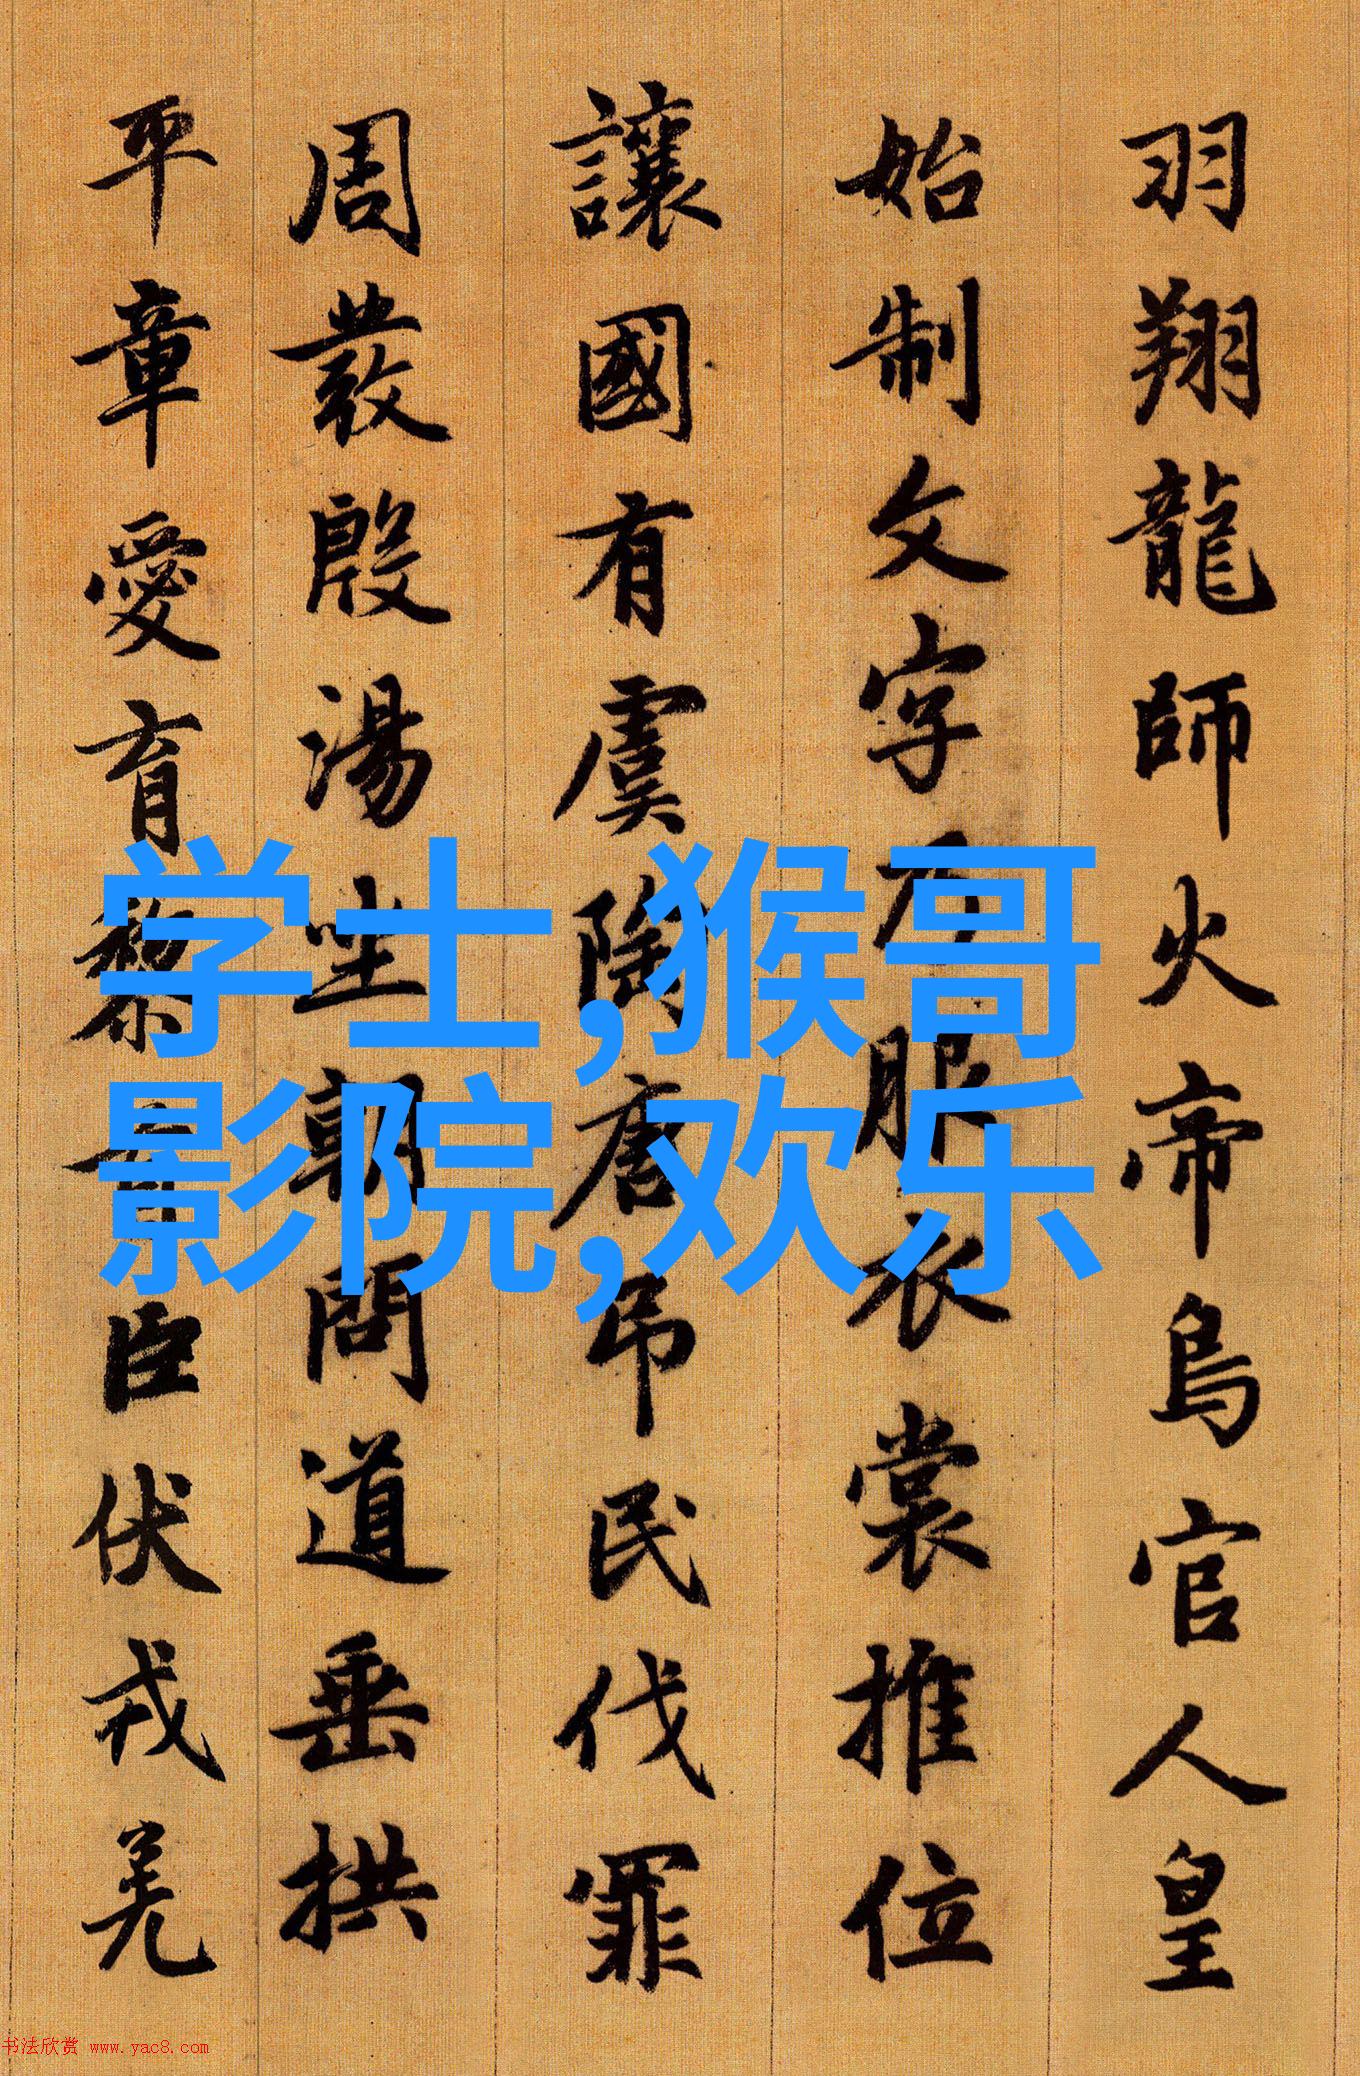 羽翔龍師火帝鳥官人皇
始制文字乃服衣裳推位
讓國有虞陶唐吊民伐罪
周發殷湯坐朝問道垂拱
平章愛育黎首臣伏戎羌
学士,猴哥
影院,欢乐
书法欣赏 www.yac8.com